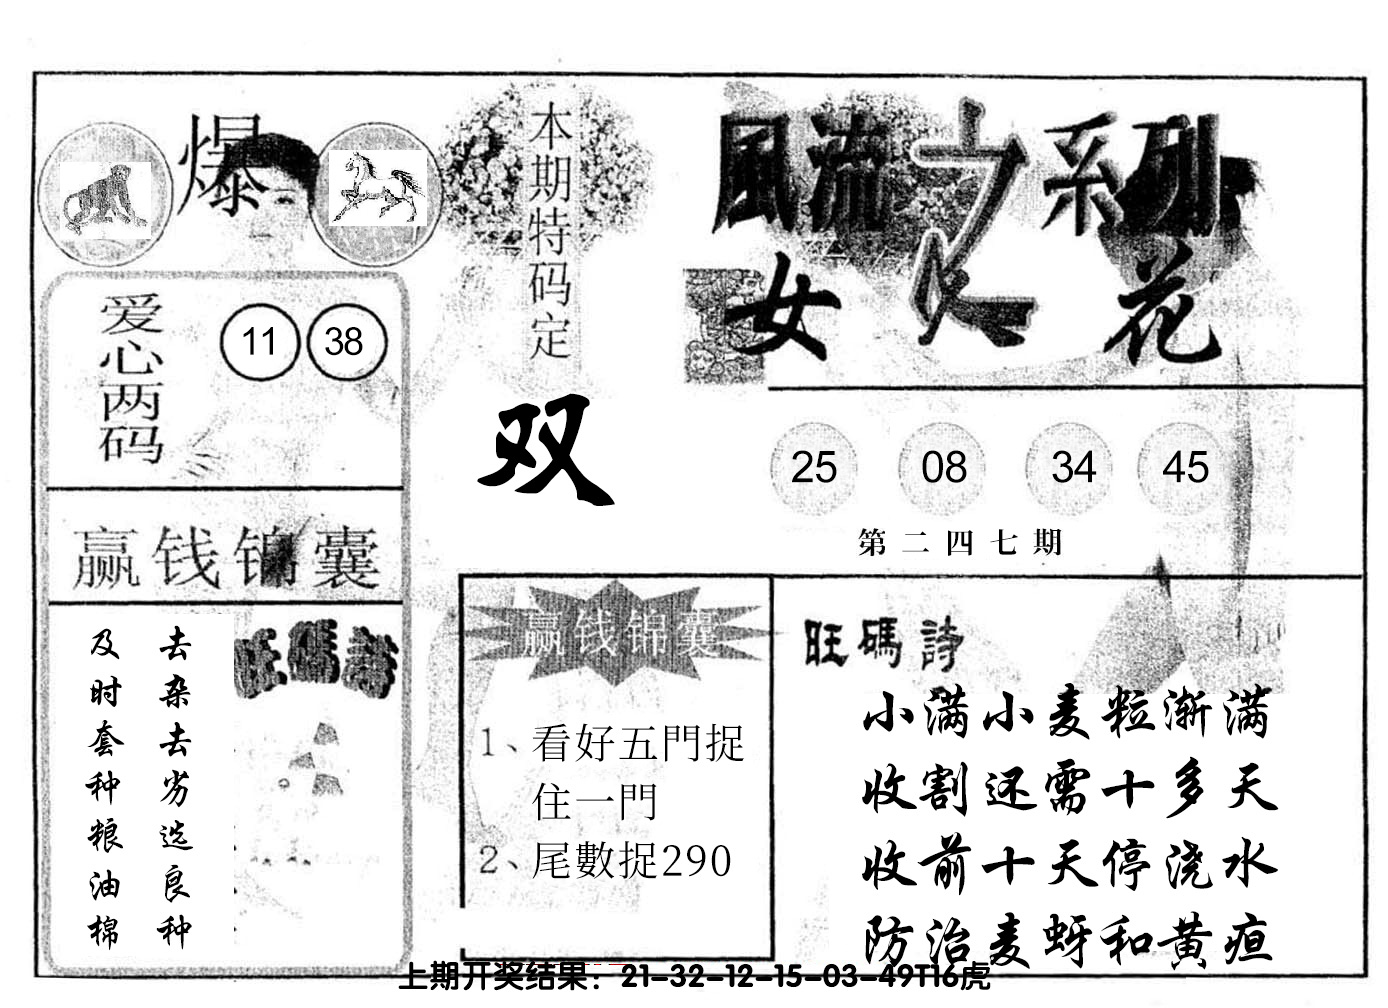 爆
本期特码定
双
風流之系列
女人花
爱心两码
11 38
25 08 34 45
第二四七期
赢钱锦囊
去杂去劣选良种
及时套种粮油棉
旺碼詩
赢钱锦囊
1、看好五門捉
住一門
2、尾數捉290
旺碼詩
小满小麦粒渐满
收割还需十多天
收前十天停浇水
防治麦蚜和黄疸
上期开奖结果：21-32-12-15-03-49T16虎